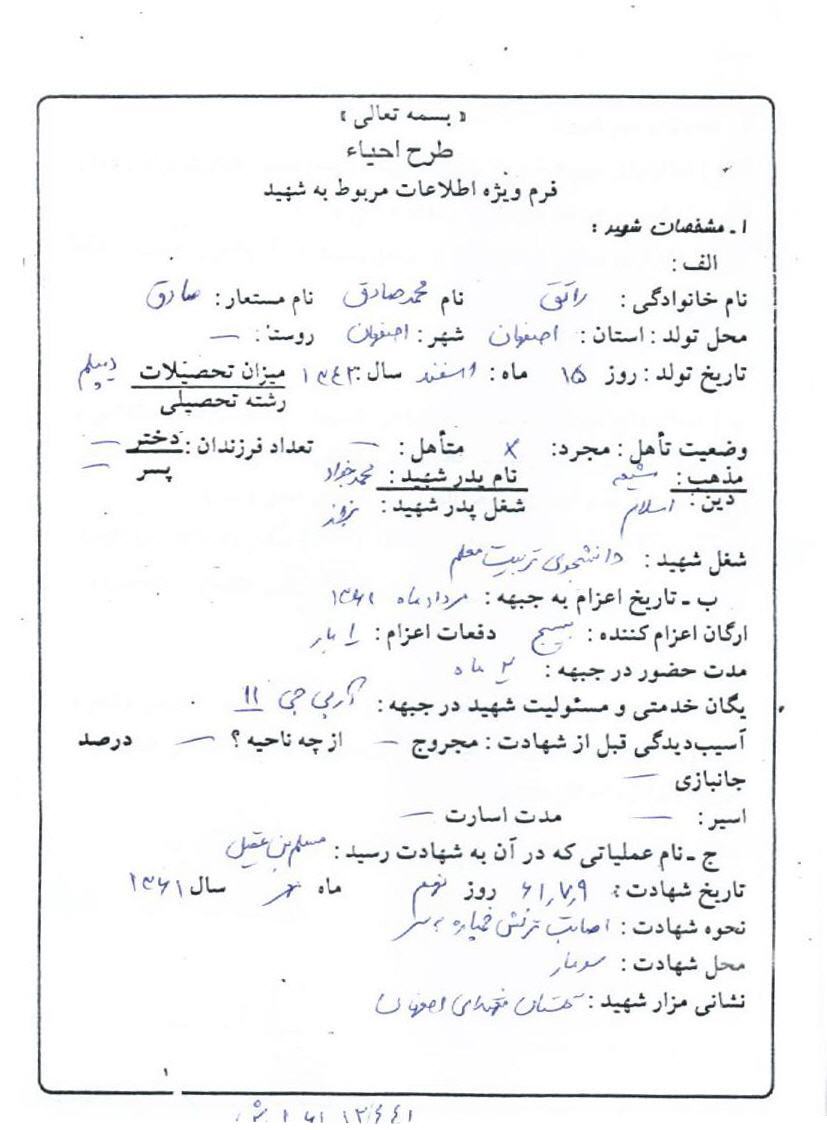 « بسمه تعالی »
طرح احیاء
فرم ویژه اطلاعات مربوط به شهید
۱ـ مشخصات شهید :
الف :
نام خانوادگی : رائق نام محمد صادق نام مستعار : صادق
محل تولد : استان : اصفهان شهر : اصفهان روستا : —
تاریخ تولد : روز ۱۵ ماه : اسفند سال : ۱۳۴۲ میزان تحصیلات دیپلم
رشته تحصیلی
وضعیت تأهل : مجرد : x متأهل : — تعداد فرزندان : دختر —
مذهب : شیعه نام پدر شهید : محمد جواد پسر —
دین : اسلام شغل پدر شهید :
شغل شهید : دانشجوی تربیت معلم
ب ـ تاریخ اعزام به جبهه : مرداد ماه ۱۳۶۱
ارگان اعزام کننده : بسیج دفعات اعزام : ۱ بار
مدت حضور در جبهه : ۲ ماه
یگان خدمتی و مسئولیت شهید در جبهه : آرپی جی ۱۱
آسیب‌دیدگی قبل از شهادت : مجروح — از چه ناحیه ؟ — درصد
جانبازی —
اسیر : — مدت اسارت —
ج ـ نام عملیاتی که در آن به شهادت رسید : مسلم بن عقیل
تاریخ شهادت : ۶۱٫۷٫۹ روز نهم ماه مهر سال ۱۳۶۱
نحوه شهادت : اصابت ترکش خمپاره به سر
محل شهادت : سومار
نشانی مزار شهید : گلستان شهدای اصفهان
۱